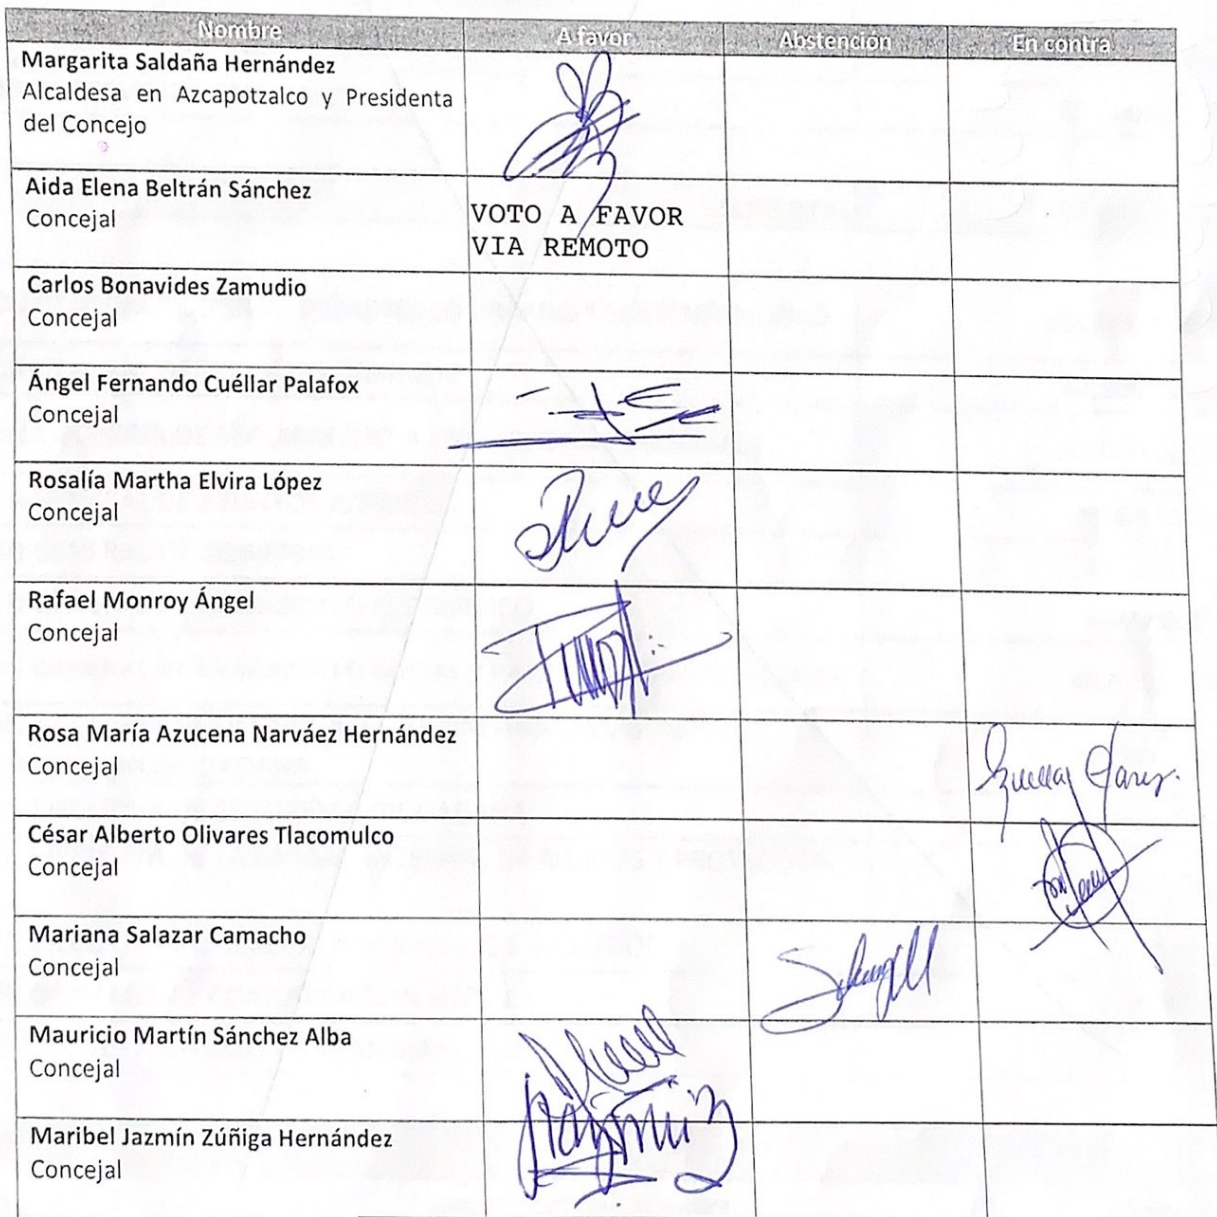 Nombre A favor Abstención En contra
Margarita Saldaña Hernández
Alcaldesa en Azcapotzalco y Presidenta
del Concejo
Aida Elena Beltrán Sánchez
Concejal
VOTO A FAVOR
VIA REMOTO
Carlos Bonavides Zamudio
Concejal
Ángel Fernando Cuéllar Palafox
Concejal
Rosalía Martha Elvira López
Concejal
Rafael Monroy Ángel
Concejal
Rosa María Azucena Narváez Hernández
Concejal
César Alberto Olivares Tlacomulco
Concejal
Mariana Salazar Camacho
Concejal
Mauricio Martín Sánchez Alba
Concejal
Maribel Jazmín Zúñiga Hernández
Concejal